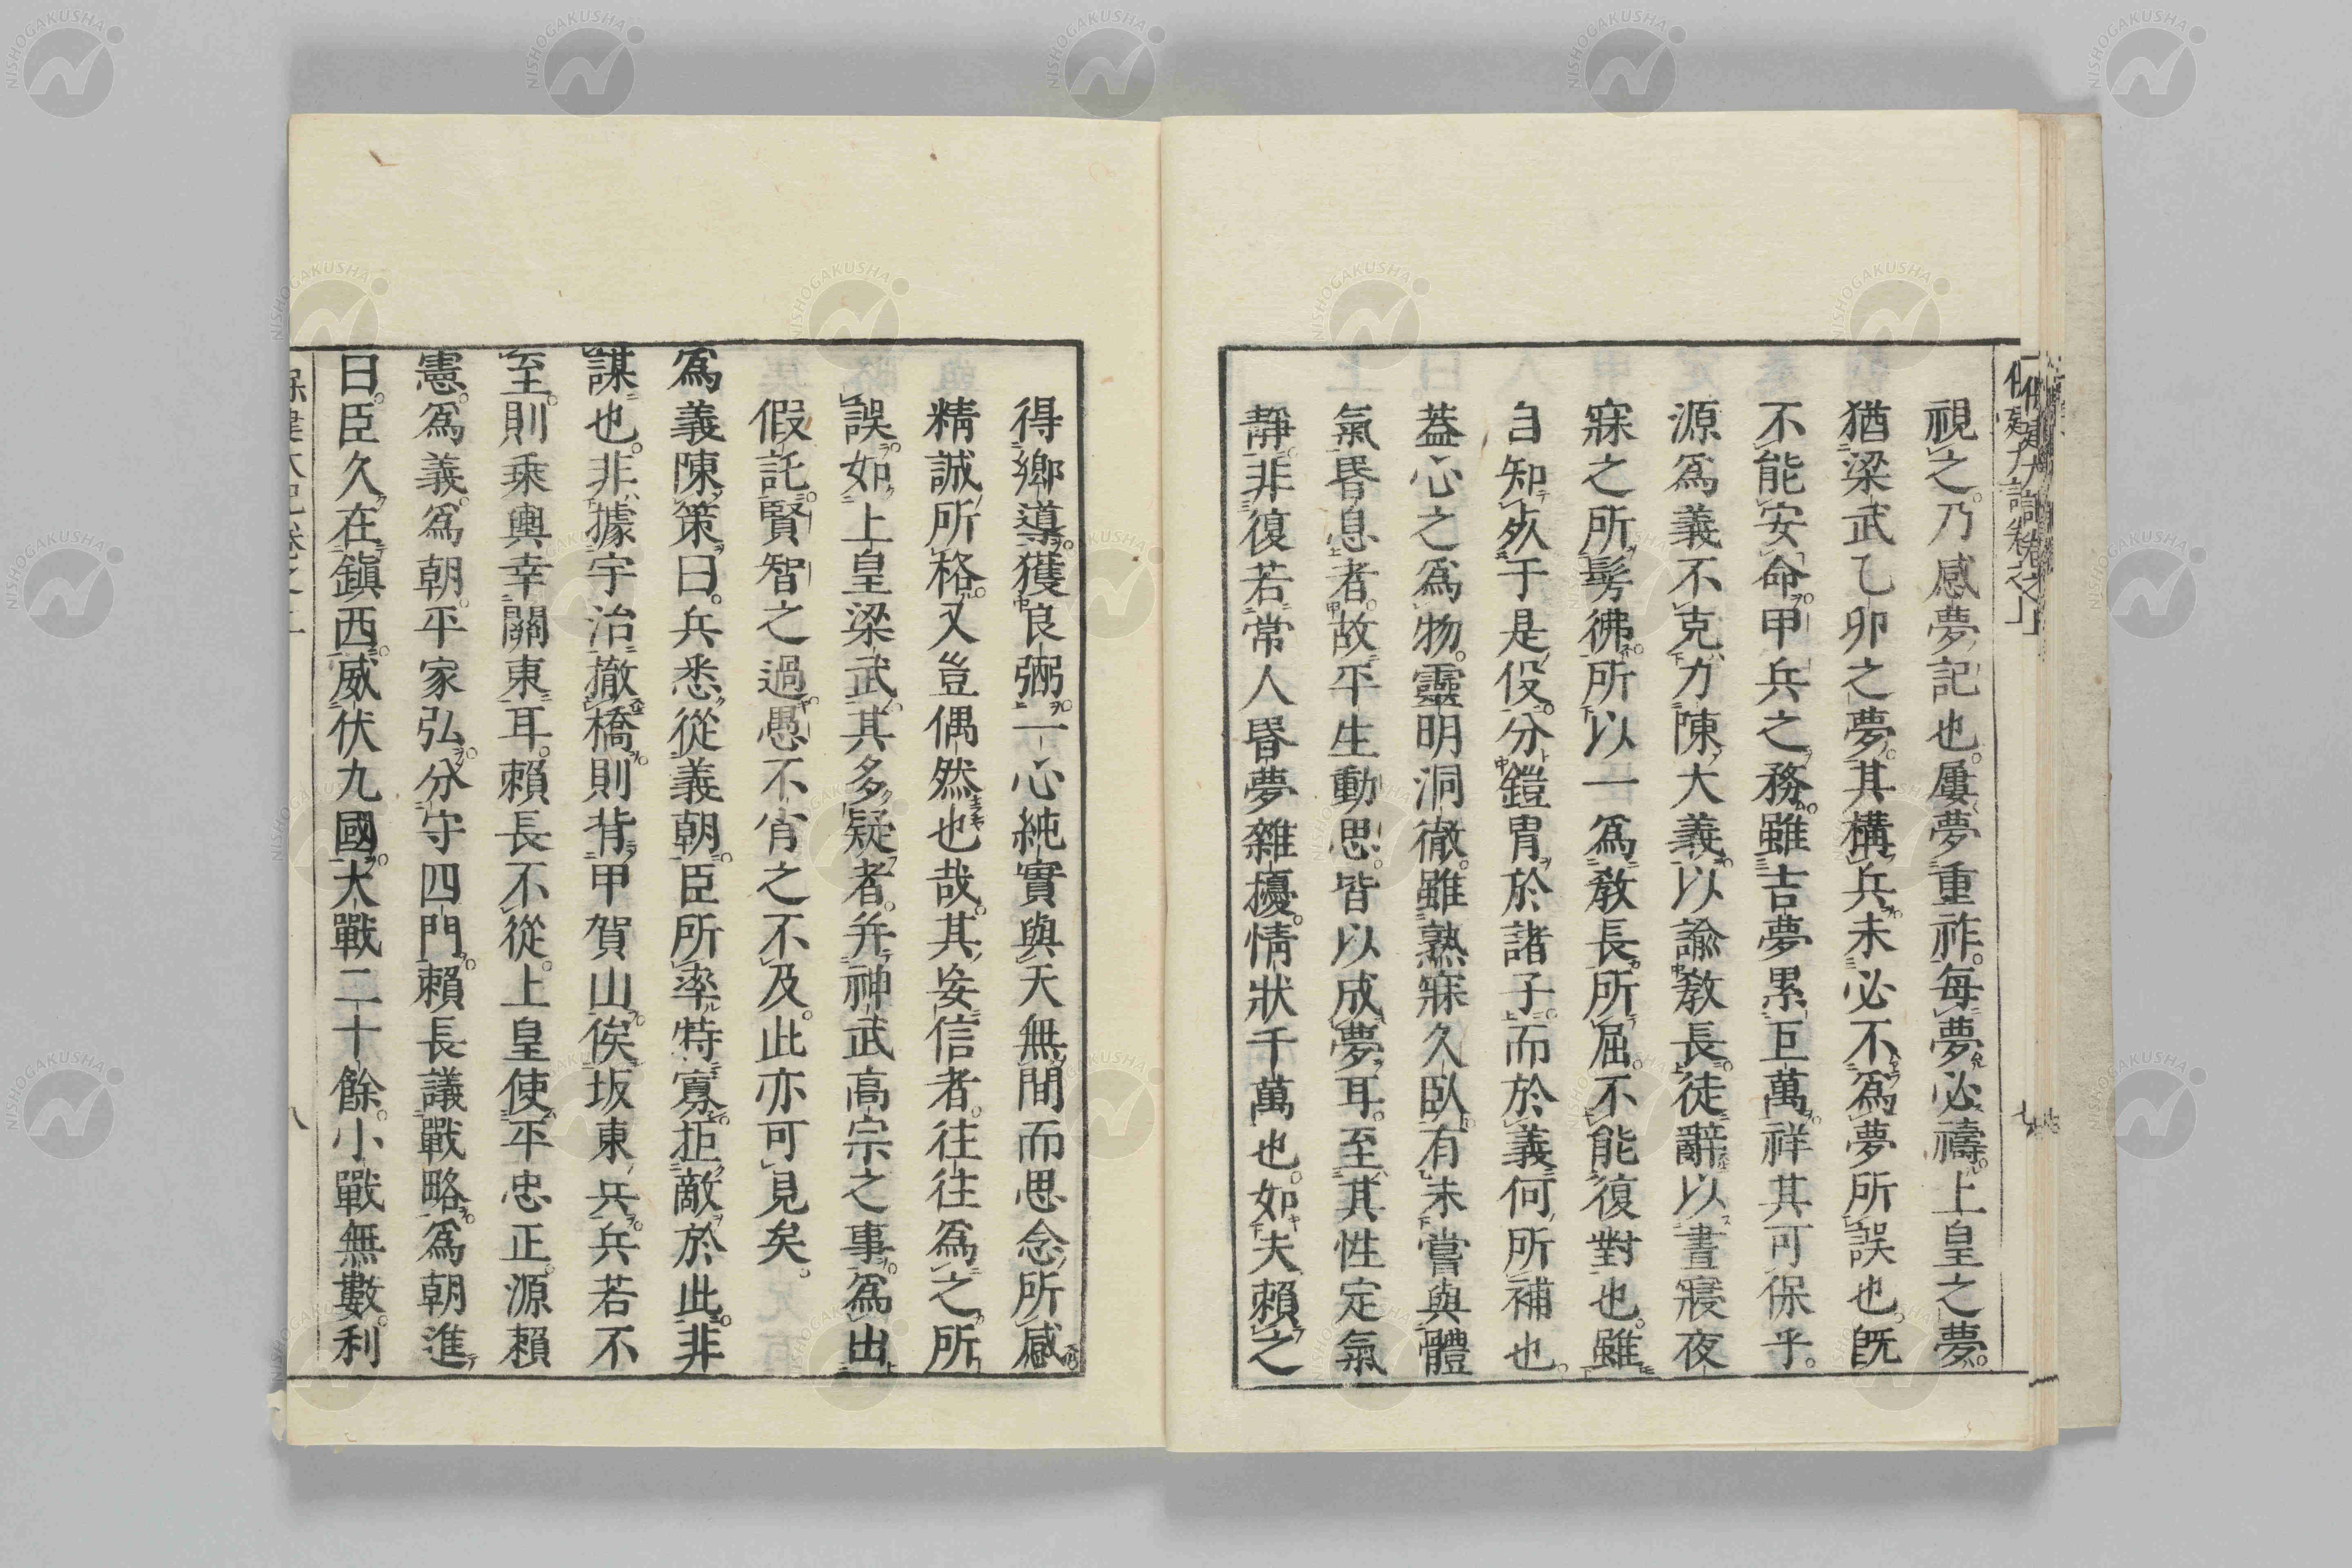 視之。乃感夢記也。屢夢重祚。每夢必禱。上皇之夢。
猶梁武乙卯之夢。其構兵。未必不爲夢所誤也。既
不能安命。甲兵之務。雖吉夢累巨萬。祥其可保乎。
源爲義不克力陳大義。以諭教長。徒辭以晝寢夜
寐之所髣彿。所以一爲教長所屈。不能復對也。雖
自知歿于是役。分鎧冑於諸子。而於義何所補也。
蓋心之爲物。靈明洞徹。雖熟寐久臥。有未嘗與體
氣昬息者。故平生動思。皆以成夢耳。至其性定氣
靜。非復若常人昬夢雜擾。情狀千萬也。如夫賴之
得鄉導。獲良弼。一心純實與天無間而思念所感
精誠所格。又豈偶然也哉。其妄信者。往往爲之所
誤。如上皇梁武。其多疑者。并神武高宗之事。爲出
假託。賢智之過。愚不肖之不及。此亦可見矣。
爲義陳策曰。兵悉從義朝。臣所率特寡。拒敵於此。非
謀也。非據宇治撤橋。則背甲賀山。俟坂東兵。兵若不
至。則乘輿幸關東耳。賴長不從。上皇使平忠正。源賴
憲。爲義。爲朝。平家弘。分守四門。賴長議戰略。爲朝進
曰。臣久在鎮西。威伏九國。大戰二十餘。小戰無數。利
八
NISHOGAKUSHA